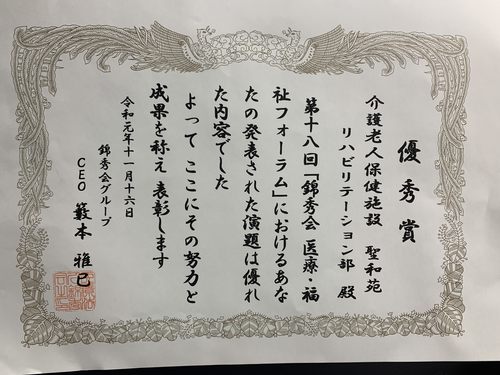 優秀賞
介護老人保健施設 聖和苑
リハビリテーション部 殿
第十八回「錦秀会 医療・福
祉フォーラム」におけるあな
たの発表された演題は優れ
た内容でした
よって ここにその努力と
成果を称え 表彰します
令和元年十一月十六日
錦秀会グループ
CEO 籔本 雅巳